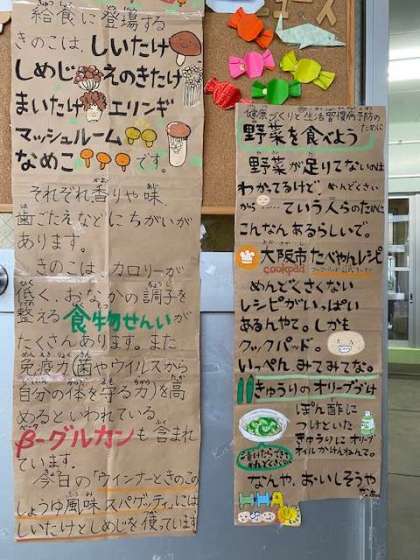 給食に登場する
きのこは、しいたけ
しめじ えのきたけ
まいたけ エリンギ
マッシュルーム
なめこ です。
それぞれ香りや味、
歯ごたえなどにちがいが
あります。
きのこは、カロリーが
低く、おなかの調子を
整える食物せんいが
たくさんあります。また
免疫力(菌やウイルスから
自分の体を守る力)を高
めるといわれている
β-グルカンも含まれ
ています。
今日の「ウインナーときのこの
しょうゆ風味スパゲッティ」には
しいたけとしめじを使っています
ニュース
健康づくりと生活習慣病予防の
ために
野菜を食べよう
野菜が足りてないのは
わかってるけど、めんどくさい
がら……ていう人らのために
こんなんあるらしいで。
大阪市たべやんレシピ
cookpad
めんどくさくない
レシピがいっぱい
あるんやて。しかも
クックパッド。
いっぺん、みてみてな。
きゅうりのオリーブづけ
ぽん酢に
つけといた
きゅうりにオリーブ
オイルかけんねんて。
なんや、おいしそうや
なぁ。